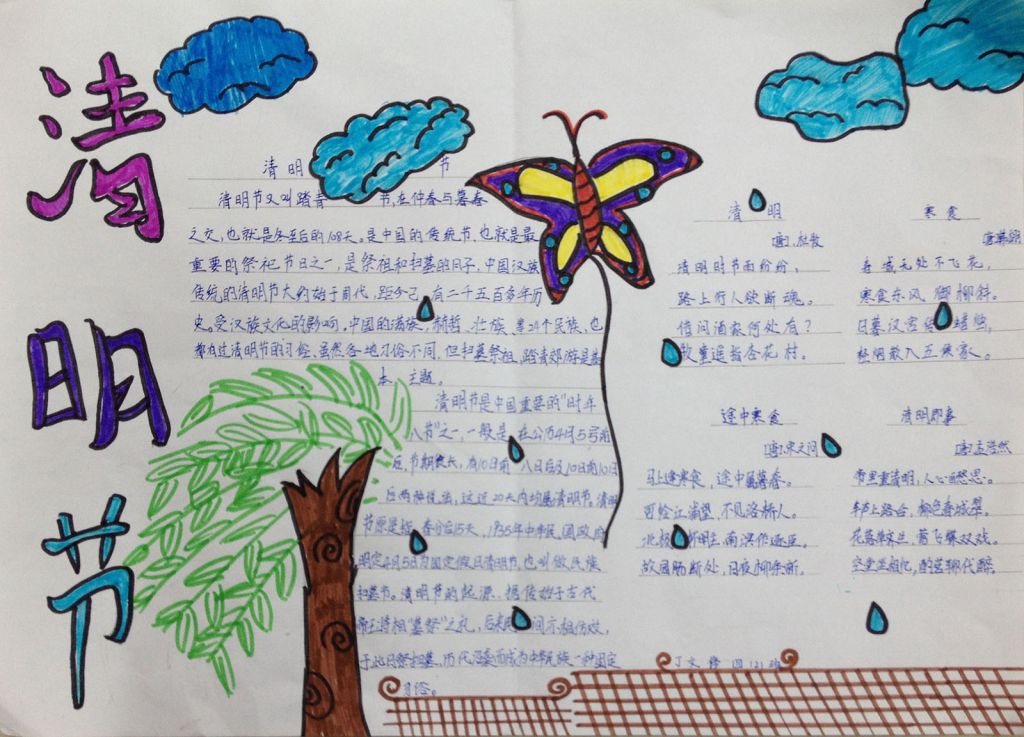 清明节
清明 节
清明节又叫踏青 节,在仲春与暮春
之交,也就是冬至后的108天。是中国的传统节,也就是最
重要的祭祀节日之一,是祭祖和扫墓的日子,中国汉族
传统的清明节大约始于周代,距今已有二千五百多年历
史。受汉族文化的影响,中国的满族、赫哲、壮族、 24个民族,也
都有过清明节的习俗,虽然各地习俗不同,但扫墓祭祖,踏青郊游是基
本 主题。
清明节是中国重要的“时年
八节”之一,一般是在公历4月5号前
后,节期很长,有10日前 八日后及10日前10日
后两种说法,这近20天内均属清明节。清明
节原是指 春分后15天,1935年中华民国政府
明定4月5日为国定假日清明节,也叫做民族
扫墓节。清明节的起源,据传始于古代
帝王将相“墓祭”之礼,后来民间亦相仿效,
于此日祭祖扫墓,历代沿袭而成为中华民族一种固定
习俗。
清 明
唐 杜牧
清明时节雨纷纷,
路上行人欲断魂。
借问酒家何处有?
牧童遥指杏花村。
寒食
唐 韩翃
春城无处不飞花,
寒食东风御柳斜。
日暮汉宫 蜡烛,
轻烟散入五侯家。
途中寒食
唐 宋之问
马上逢寒食,途中属暮春。
可怜江浦望,不见洛桥人。
北极 明主,南溟作逐臣。
故园肠断处,日夜柳条新。
清明即事
唐 孟浩然
帝里重清明,人心自愁思。
车声上路合,柳色春城翠。
花落草齐生,莺飞蝶双戏。
空堂坐相忆,酌茗聊代醉。
丁文 四(2)班